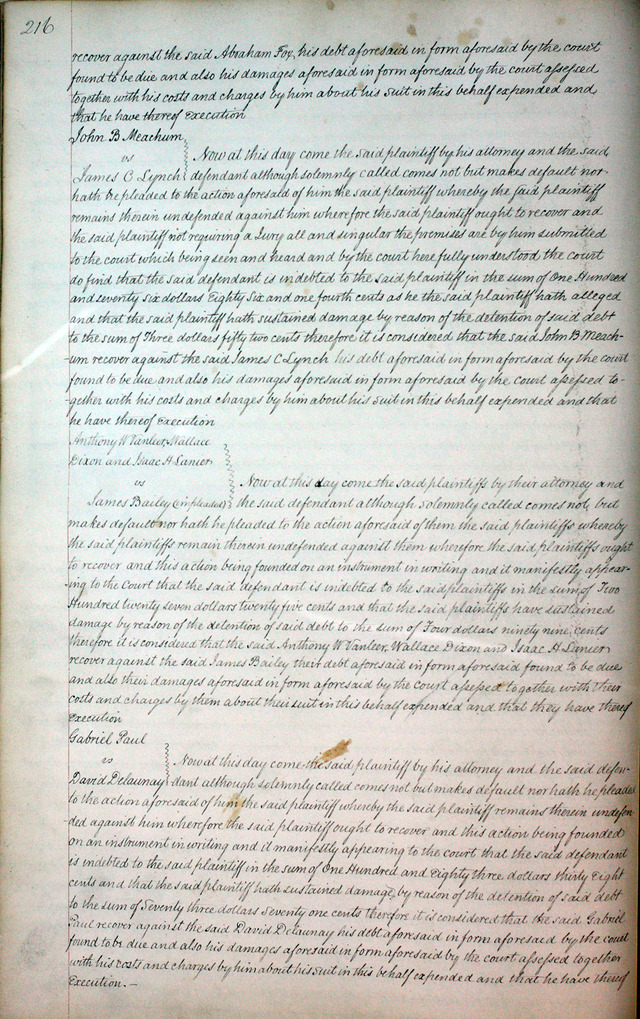 216
recover against the said Abraham Fox, his debt aforesaid in form aforesaid by the court
found to be due and also his damages aforesaid in form aforesaid by the court assessed
together with his costs and charges by him about his suit in this behalf expended and
that he have thereof Execution
John B Meachum
vs Now at this day come the said plaintiff by his attorney and the said
James C Lynch defendant although solemnly called comes not but makes default nor
hath he pleaded to the action aforesaid of him the said plaintiff whereby the said plaintiff
remains therein undefended against him wherefore the said plaintiff ought to recover and
the said plaintiff not requiring a Jury all and singular the premises are by him submitted
to the court which being seen and heard and by the court here fully understood the court
do find that the said defendant is indebted to the said plaintiff in the sum of One Hundred
and seventy six dollars Eighty Six and one fourth cents as he the said plaintiff hath alleged
and that the said plaintiff hath sustained damage by reason of the detention of said debt
to the sum of Three dollars fifty two cents therefore it is considered that the said John B Meach-
-um recover against the said James C Lynch his debt aforesaid in form aforesaid by the court
found to be due and also his damages aforesaid in form aforesaid by the court assessed to-
-gether with his costs and charges by him about his suit in this behalf expended and that
he have thereof Execution
Anthony W Vanleer, Wallace
Dixon and Isaac H Lanier
vs Now at this day come the said plaintiffs by their attorney and
James Bailey (impleaded) the said defendant although solemnly called comes not, but
makes default nor hath he pleaded to the action aforesaid of them the said plaintiffs whereby
the said plaintiffs remain therein undefended against them wherefore the said plaintiffs ought
to recover and this action being founded on an instrument in writing and it manifestly appear-
-ing to the Court that the said defendant is indebted to the said plaintiffs in the sum of Two
Hundred twenty seven dollars twenty five cents and that the said plaintiffs have sustained
damage by reason of the detention of said debt to the sum of Four dollars ninety nine cents
therefore it is considered that the said Anthony W Vanleer, Wallace Dixon and Isaac H Lanier
recover against the said James Bailey their debt aforesaid in form aforesaid found to be due
and also their damages aforesaid in form aforesaid by the court assessed together with their
costs and charges by them about their suit in this behalf expended and that they have thereof
Execution
Gabriel Paul
vs Now at this day come the said plaintiff by his attorney and the said defen-
David Delaunay dant although solemnly called comes not but makes default nor hath he pleaded
to the action aforesaid of him the said plaintiff whereby the said plaintiff remains therein undefen-
-ded against him wherefore the said plaintiff ought to recover and this action being founded
on an instrument in writing and it manifestly appearing to the court that the said defendant
is indebted to the said plaintiff in the sum of One Hundred and Eighty three dollars thirty Eight
cents and that the said plaintiff hath sustained damage, by reason of the detention of said debt
to the sum of Seventy three dollars Seventy one cents therefore it is considered that the said Gabriel
Paul recover against the said David Delaunay his debt aforesaid in form aforesaid by the court
found to be due and also his damages aforesaid in form aforesaid by the court assessed together
with his costs and charges by him about his suit in this behalf expended and that he have thereof
Execution.—